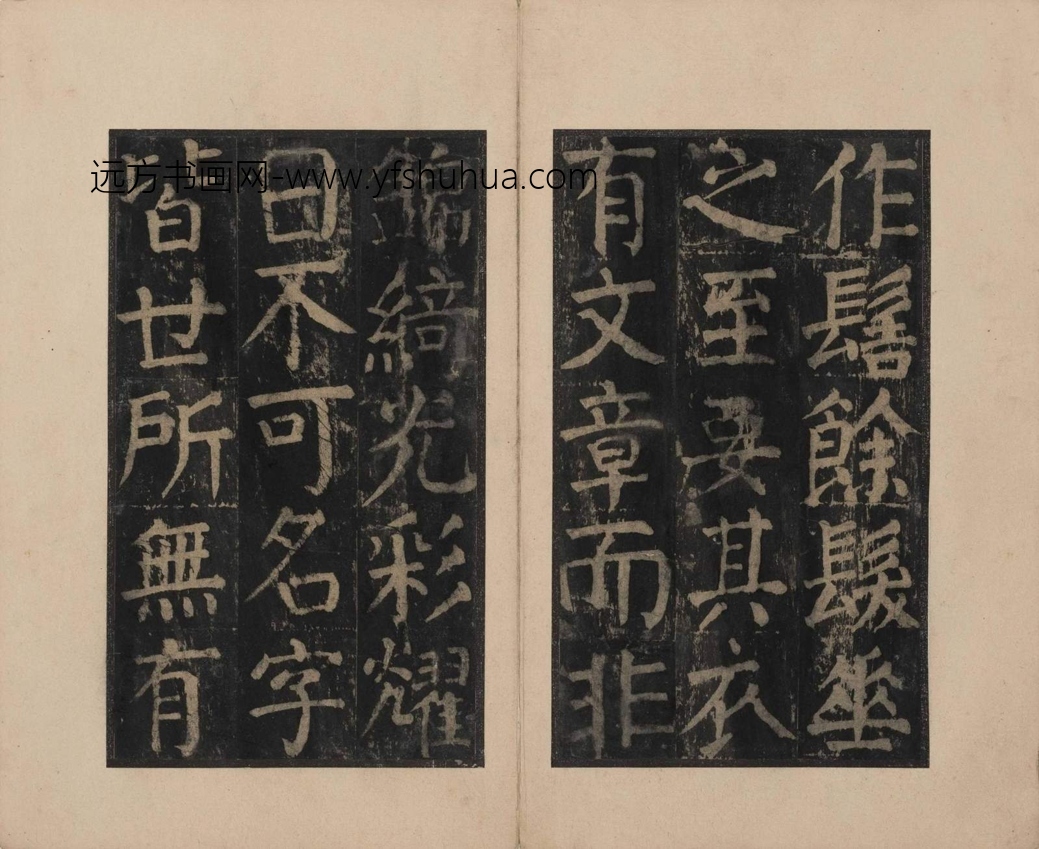 作髻餘髮垂
之至要其衣
有文章而非
錦綺光彩耀
日不可名字
皆世所無有
远方书画网-www.yfshuhua.com